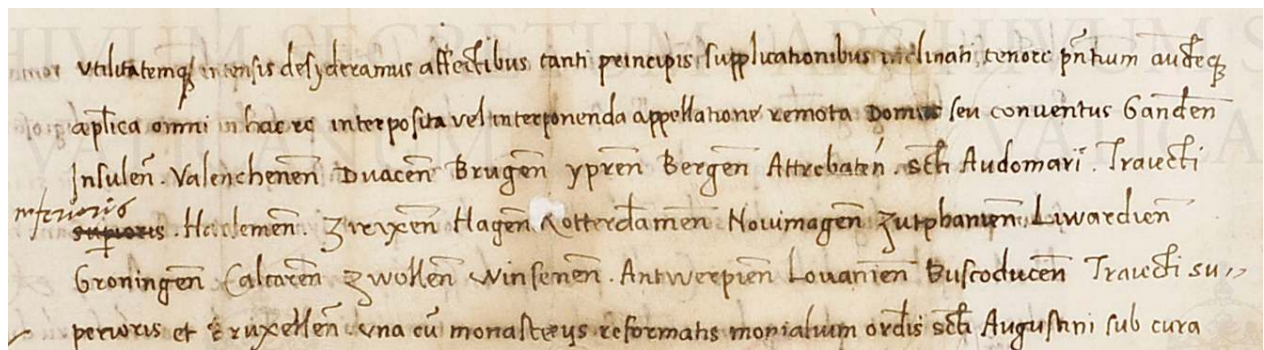 utilitatemq; intensis desyderamus affectibus tanti principis supplicationibus inclinati tenore pñtium auctēq;
aplica omni in hac re interposita vel interponenda appellatione remota Domus seu conventus Ganden̄
Insulen̄. Valenchenen̄ Duacen̄ Brugen̄ ypren̄ Bergen̄ Attrebaten̄. Scti Audomari. Traiecti
inferioris
supioris. Harlemen̄. Zirixen̄ Hagen̄ Rotterdamen̄ Novimagen̄ Zutphanien̄ Liwardien̄
Groningen̄ Calcaren̄ Zwollen̄ Winsenen̄. Antwerpien̄ Lovanien̄ Buscoducen̄ Traiecti su„
perioris et Bruxellen̄ una cū monasterijs reformatis monialium ordīs Scti Augustini sub cura